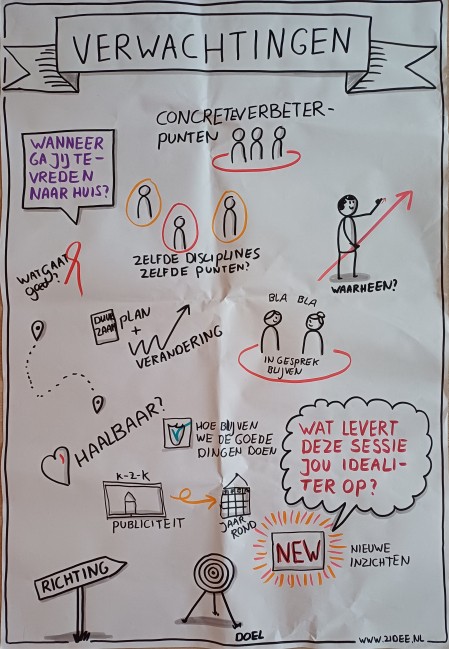 VERWACHTINGEN
CONCRETE VERBETER-
PUNTEN
WANNEER
GA JIJ TE-
VREDEN
NAAR HUIS?
ZELFDE DISCIPLINES
ZELFDE PUNTEN?
WAT GAAT
goed?
WAARHEEN?
DUUR
ZAAM
PLAN
+
VERANDERING
BLA BLA
IN GESPREK
BLIJVEN
HAALBAAR?
HOE BLIJVEN
WE DE GOEDE
DINGEN DOEN
WAT LEVERT
DEZE SESSIE
JOU IDEALI-
TER OP?
K-2-K
PUBLICITEIT
JAAR
ROND
NEW
NIEUWE
INZICHTEN
RICHTING
DOEL
WWW.2IDEE.NL